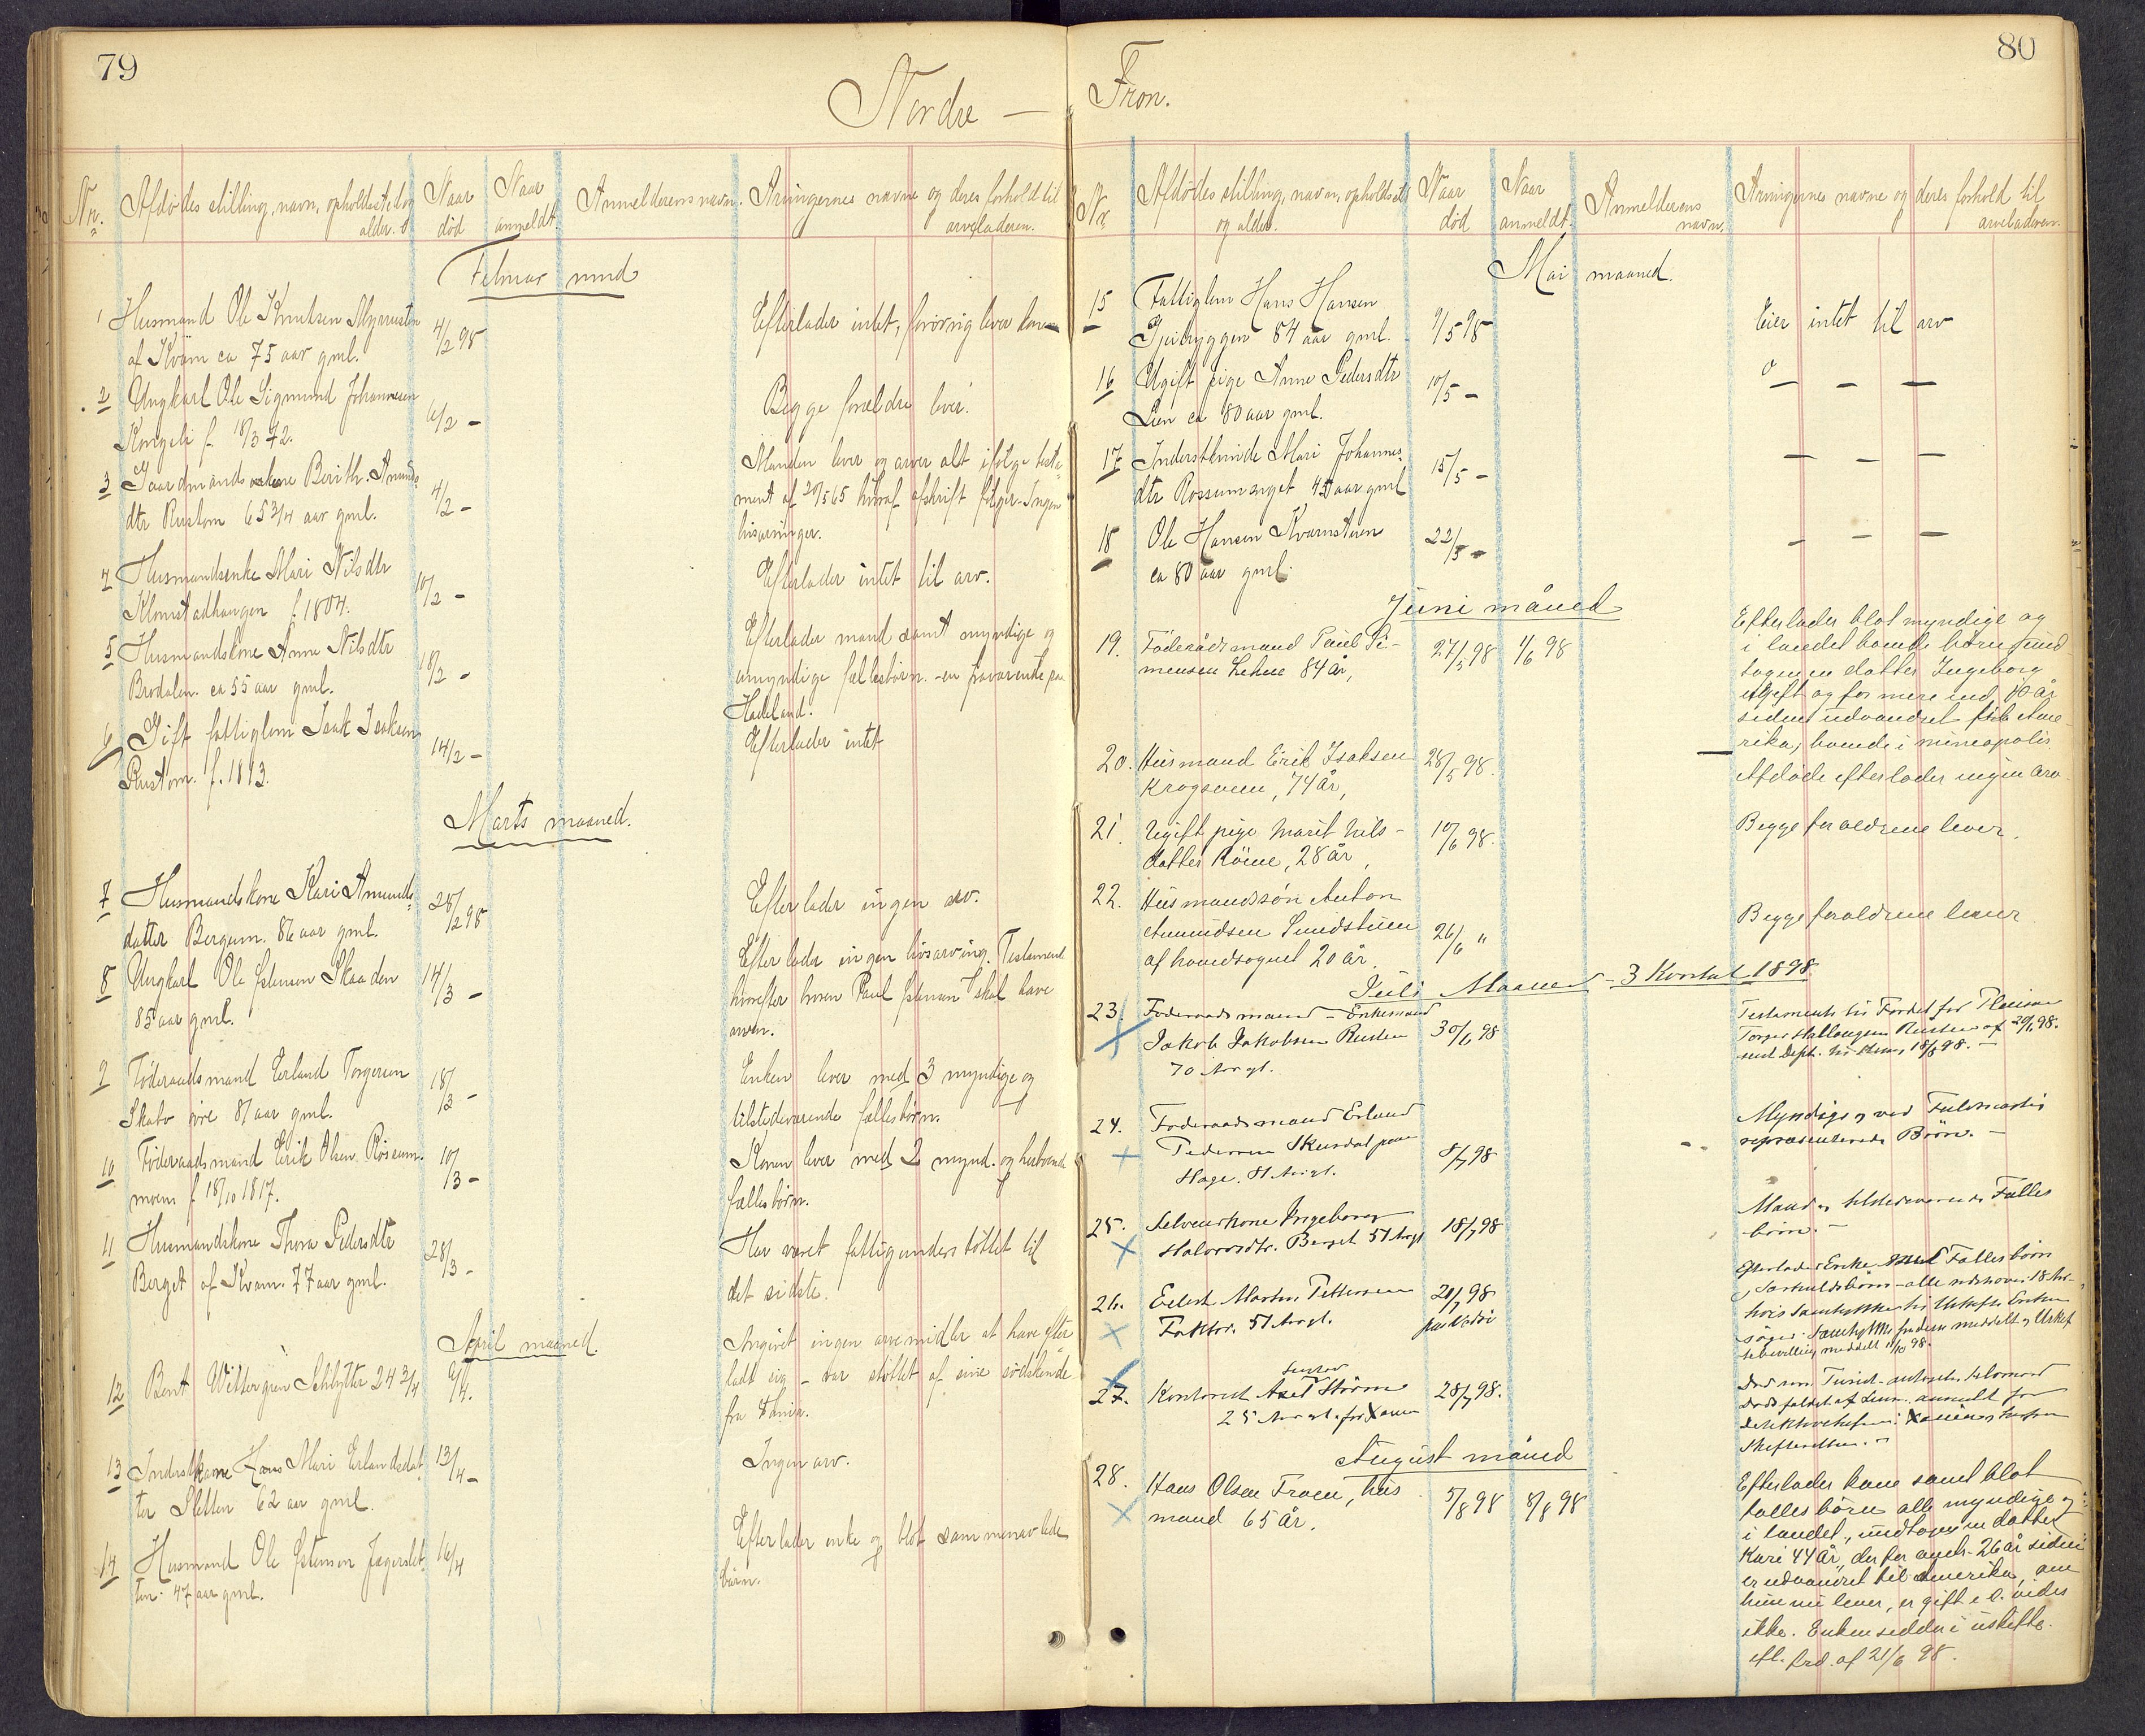 79
Nordre —
Nr. Afdødes stilling, navn, opholdssted og alder. Naar død Naar anmeldt. Anmelderens navn. Arvingernes navne og deres forhold til arveladeren.
Februar mnd
1 Husmand Ole Knutsen Myrusten 4/2 98 Efterlader intet, forøvrig lever konen
af Kvam ca 75 aar gml.
2 Ungkarl Ole Sigmund Johannesen 6/2 - Begge forældre lever.
Kongsli f. 18/3 72.
3 Gaardmandskone Berith Amunds- 4/2 - Manden lever og arver alt ifølge testa-
dtr Rustom 65 3/4 aar gml. ment af 20/5 65 hvoraf afskrift følger. Ingen
livsarvinger.
4 Husmandsenke Mari Nilsdtr 10/2 - Efterlader intet til arv.
Klomstadhaugen f. 1804.
5 Husmandskone Anne Nilsdtr 18/2 - Efterlader mand samt myndige og
Brodalen ca 55 aar gml. umyndige fællesbørn - en fraværende paa
Hadeland.
6 Gift fattiglem Isak Isaksen 14/2 - Efterlader intet
Rustom. f. 1813.
Marts maaned.
7 Husmandskone Kari Amunds- 28/2 98 Efterlader ingen arv.
datter Bergum. 86 aar gml.
8 Ungkarl Ole Estensen Skaaden 14/3 - Efterlader ingen livsarving. Testament
85 aar gml. hvorefter broren Paul Estensen skal have
arven.
9 Føderaadsmand Erland Torgersen 18/3 - Enken lever med 3 myndige og
Skabo øvre 81 aar gml. tilstedeværende fællesbørn.
10 Føderaadsmand Erik Olsen Røssum- 10/3 - Konen lever med 2 mynd. og herboende
moen f. 18/10 1817. fællesbørn.
11 Husmandskone Thora Pedersdtr 28/3 - Har været fattigunderstöttet til
Berget af Kvam. 77 aar gml. det sidste.
April maaned.
12 Bent Wittergren Schlytter 24 3/4 9/4. Angivet ingen arvemidler at have efter
ladt sig - var støttet af sine sødskende
fra
13 Inderstkone Mari Erlandsdat- 13/4 - Ingen arv.
ter Sletten 62 aar gml.
14 Husmand Ole Estensen Jægerslet- 16/4 Efterlader enke og blot sammenavlede
ten. 47 aar gml. børn.
80
Fron.
Nr. Afdødes stilling, navn, opholdssted og alder. Naar død Naar anmeldt. Anmelderens navn. Arvingernes navne og deres forhold til arveladeren.
Mai maaned.
15 Fattiglem Hans Hansen 9/5 98 Eier intet til arv
84 aar gml.
16 Ugift pige Anne Pedersdtr 10/5 - — — —
Lien ca 80 aar gml.
17 Inderstkvinde Mari Johannes- 15/5 - — — —
dtr Rossumenget 45 aar gml
18 Ole Hansen Kvarnstuen 22/5 - — — —
ca 80 aar gml.
Juni måned
19. Föderådsmand Paul Si- 27/5 98 1/6 98 Efterlader blot myndige og
mensen Lehne 84 år, i landet boende børn und-
tagen en datter Ingeborg
ugift og for mere end 10 år
siden udvandret fill Ame-
rika, boende i mineapolis
20. Husmand Erik Isaksen 28/5 98. Afdöde efterlader ingen arv
Krogsveen, 74 år,
21. Ugift pige Marit Nils- 10/6 98. Begge forældrene lever.
datter Röine, 28 år,
22. Husmandssön Anton Begge foraldrene lever
Amundsen Sundstuen 26/6 "
af hovedsognet 20 år.
Juli Maaned - 3 Kvartal 1898
23. Føderaadsmand - Enkemand Testamente til Fordel for
Jakob Jakobsen Rusten 30/6 98 Rusten af 20/1 98.
70 Aar gl. sendt Dept. 18/8 98. —
24. Foderaadsmand Erland Myndige og ved Fuldmægtig
Pedersen Skurdal paa 8/7 98 repræsenterede Börn. —
Hage. 81 Aar gl.
25. Selveierkone Ingeborg 18/7 98 Mand og tilstedeværende Fælles
Halvorsdtr. Berget 51 Aar gl börn. —
26. Martin Pettersen 20/7 98 Efterlader Enke med Fællesbörn
Faktor. 51 Aar gl. og Særkuldsbörn - alle udenover 18 Aar -
hvis Samtykke til Uskifte Enken
söger. Samtykke meddelt og Uskif-
tebevilling meddelt 11/10 98.
27. Kontorist Axel Störm 28/7 98.
25 Aar gl.
Skifteretten. —
August måned
28. Hans Olsen Froen, hus 5/8 98 8/8 98 Efterlader kone samt blot
mand 65 år. fælles börn alle myndige og
i landet, undtagen en datter
Kari 44 år, der for 26 år siden
er udvandret til Amerika, om
hun nu lever, er gift e.l. vides
ikke. Enken sidder i uskifte
efl. frd. af 21/6 98.